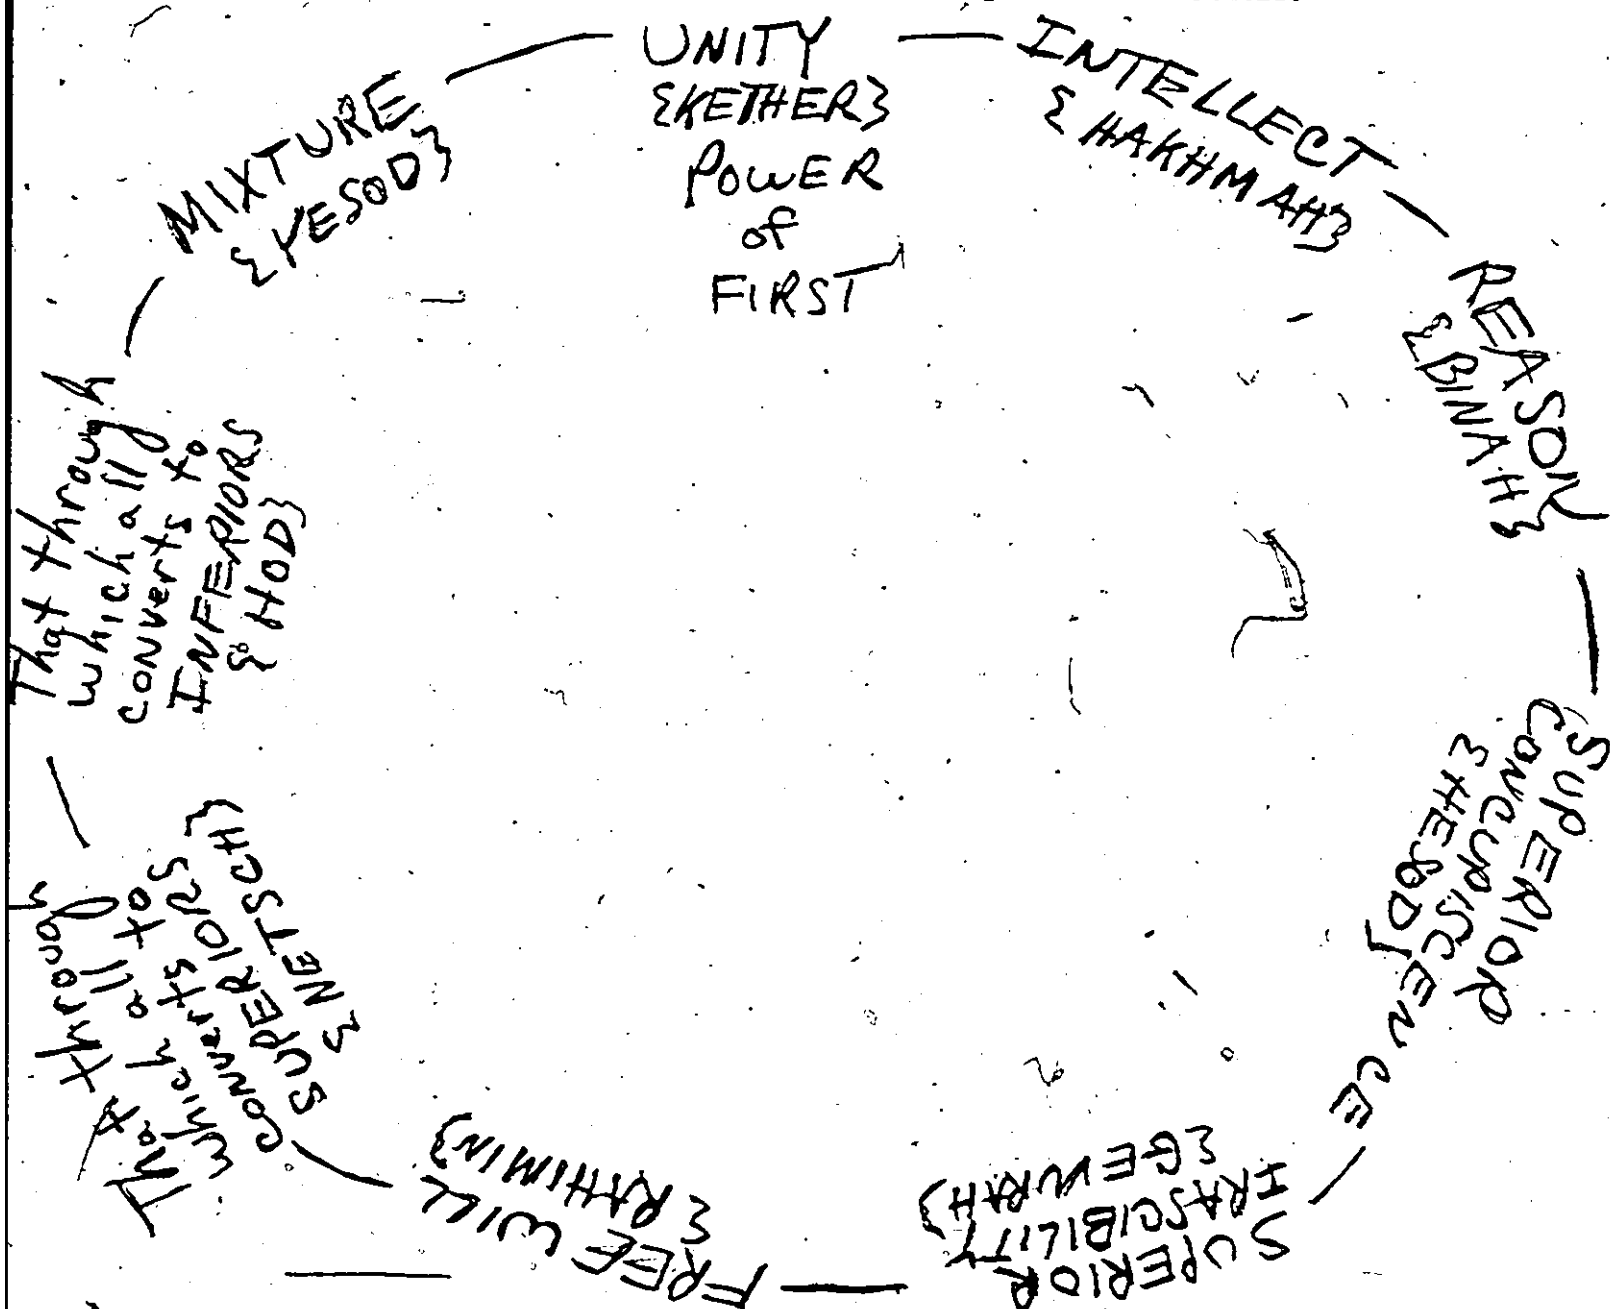 UNITY
{KETHER}
POWER
of
FIRST
INTELLECT
{HAKHMAH}
REASON
{BINAH}
SUPERIOR
CONCUPISCENCE
{HESOD}
SUPERIOR
IRASCIBILITY
{GEVURAH}
FREE WILL
{RAHIMIN}
That through
which all to
converts to
SUPERIORS
{NETSCH}
That through
which all
converts to
INFERIORS
{HOD}
MIXTURE
{YESOD}